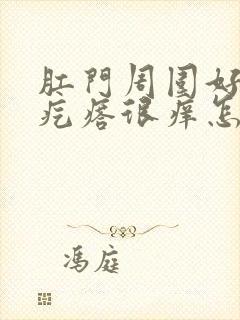 肛門周围好
疙瘩很痒怎
馮庭